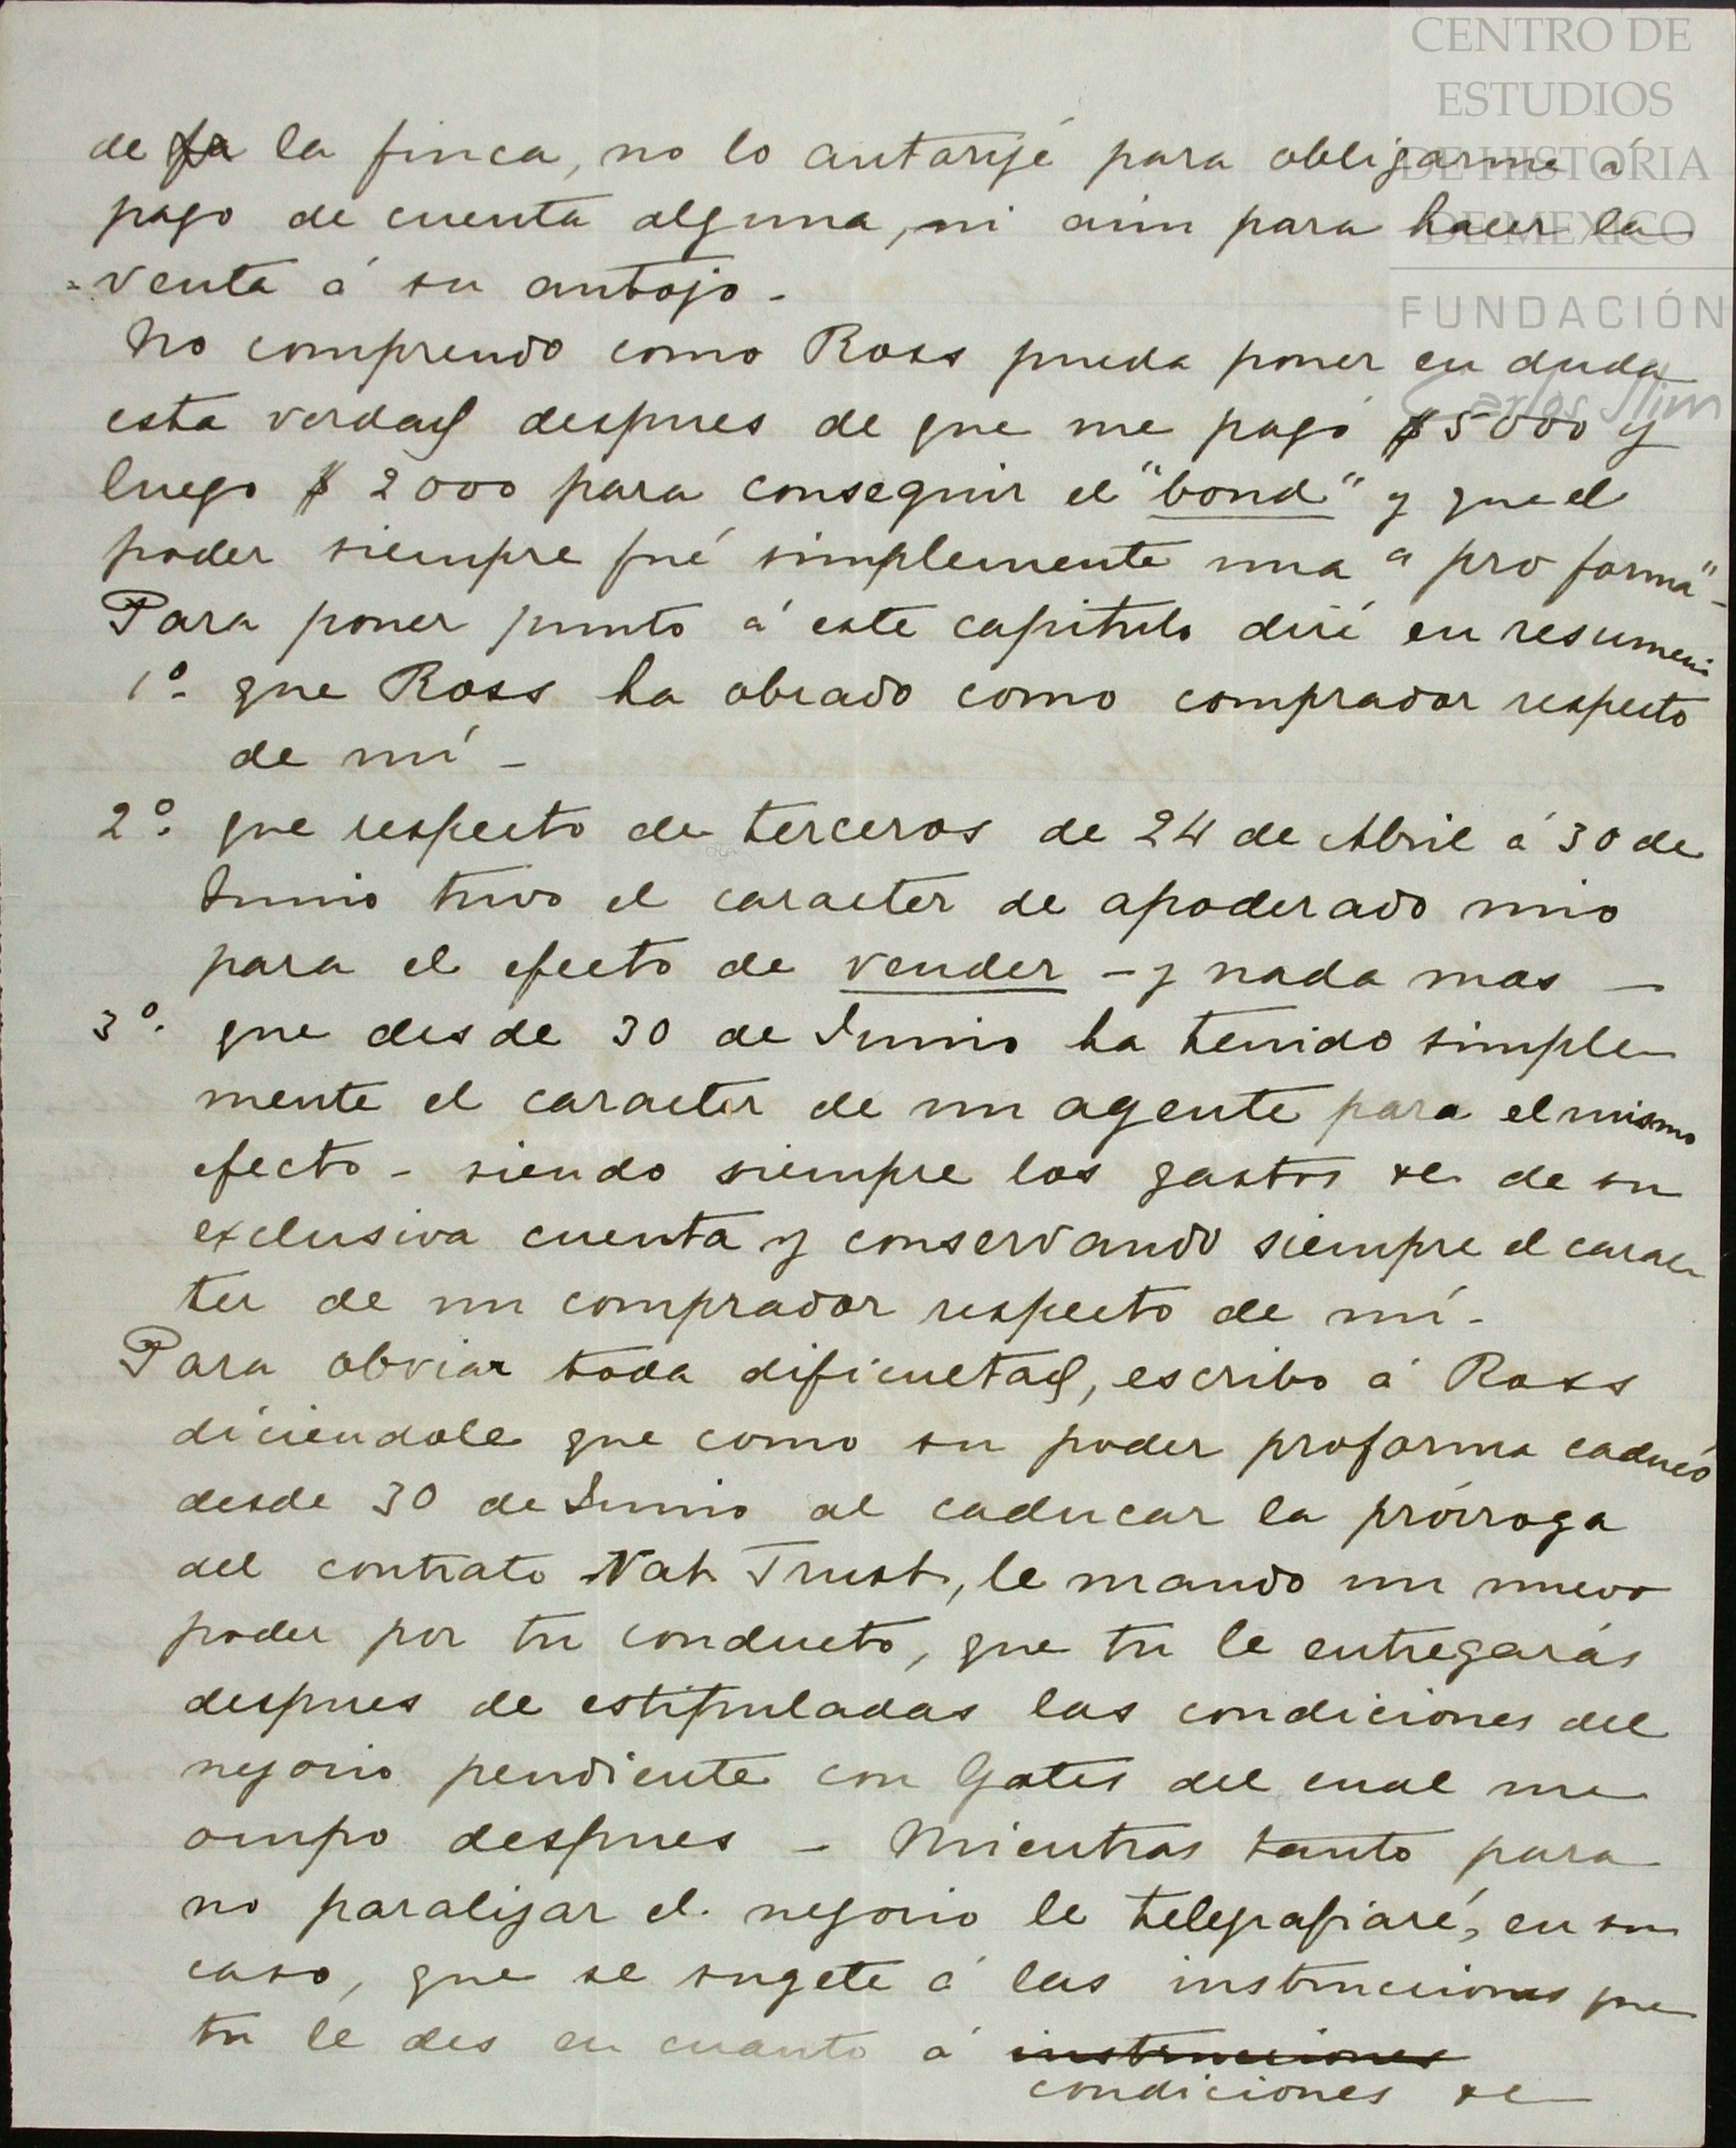 CENTRO DE
ESTUDIOS
DE HISTORIA
DE MEXICO
FUNDACIÓN
Carlos Slim
de la finca, no lo autorizé para obligarme á
pago de cuenta alguna, ni aún para hacer la
venta á su antojo -
No comprendo como Ross pueda poner en duda
esta verdad despues de que me pagó $5000 y
luego $2000 para conseguir el "bond" y que el
poder siempre fué simplemente una "pro forma" -
Para poner punto á este capitulo diré en resumen:
1º- que Ross ha obrado como comprador respecto
de mí -
2º. que respecto de terceros de 24 de Abril á 30 de
Junio tuvo el caracter de apoderado mio
para el efecto de vender - y nada mas -
3º. que desde 30 de Junio ha tenido simple-
mente el caracter de un agente para el mismo
efecto - siendo siempre los gastos &c de su
exclusiva cuenta y conservando siempre el carac-
ter de un comprador respecto de mí -
Para obviar toda dificultad, escribo á Ross
diciendole que como su poder proforma caducó
desde 30 de Junio al caducar la prórroga
del contrato Nat Trust, le mando un nuevo
poder por tu conducto, que tu le entregarás
despues de estipuladas las condiciones del
negocio pendiente con Gates del cual me
ocupo despues - Mientras tanto para
no paralizar el negocio le telegrafiaré, en su
caso, que se sugete á las instrucciones que
tu le des en cuanto á instrucciones
condiciones &c